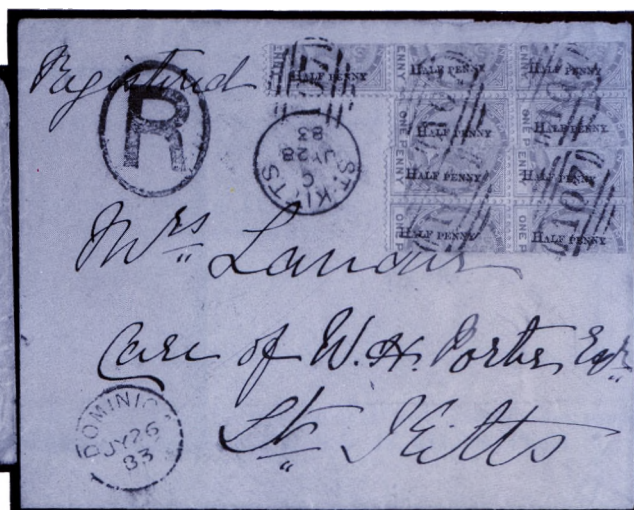 Registered
R
HALF PENNY HALF PENNY HALF PENNY
HALF PENNY HALF PENNY
HALF PENNY HALF PENNY
HALF PENNY HALF PENNY
ONE PENNY ONE PENNY
ST. KITTS
C
JY 28
83
A07
Mrs
Care of W. H. Porter Esqr
St. Kitts
DOMINIC
JY 26
83